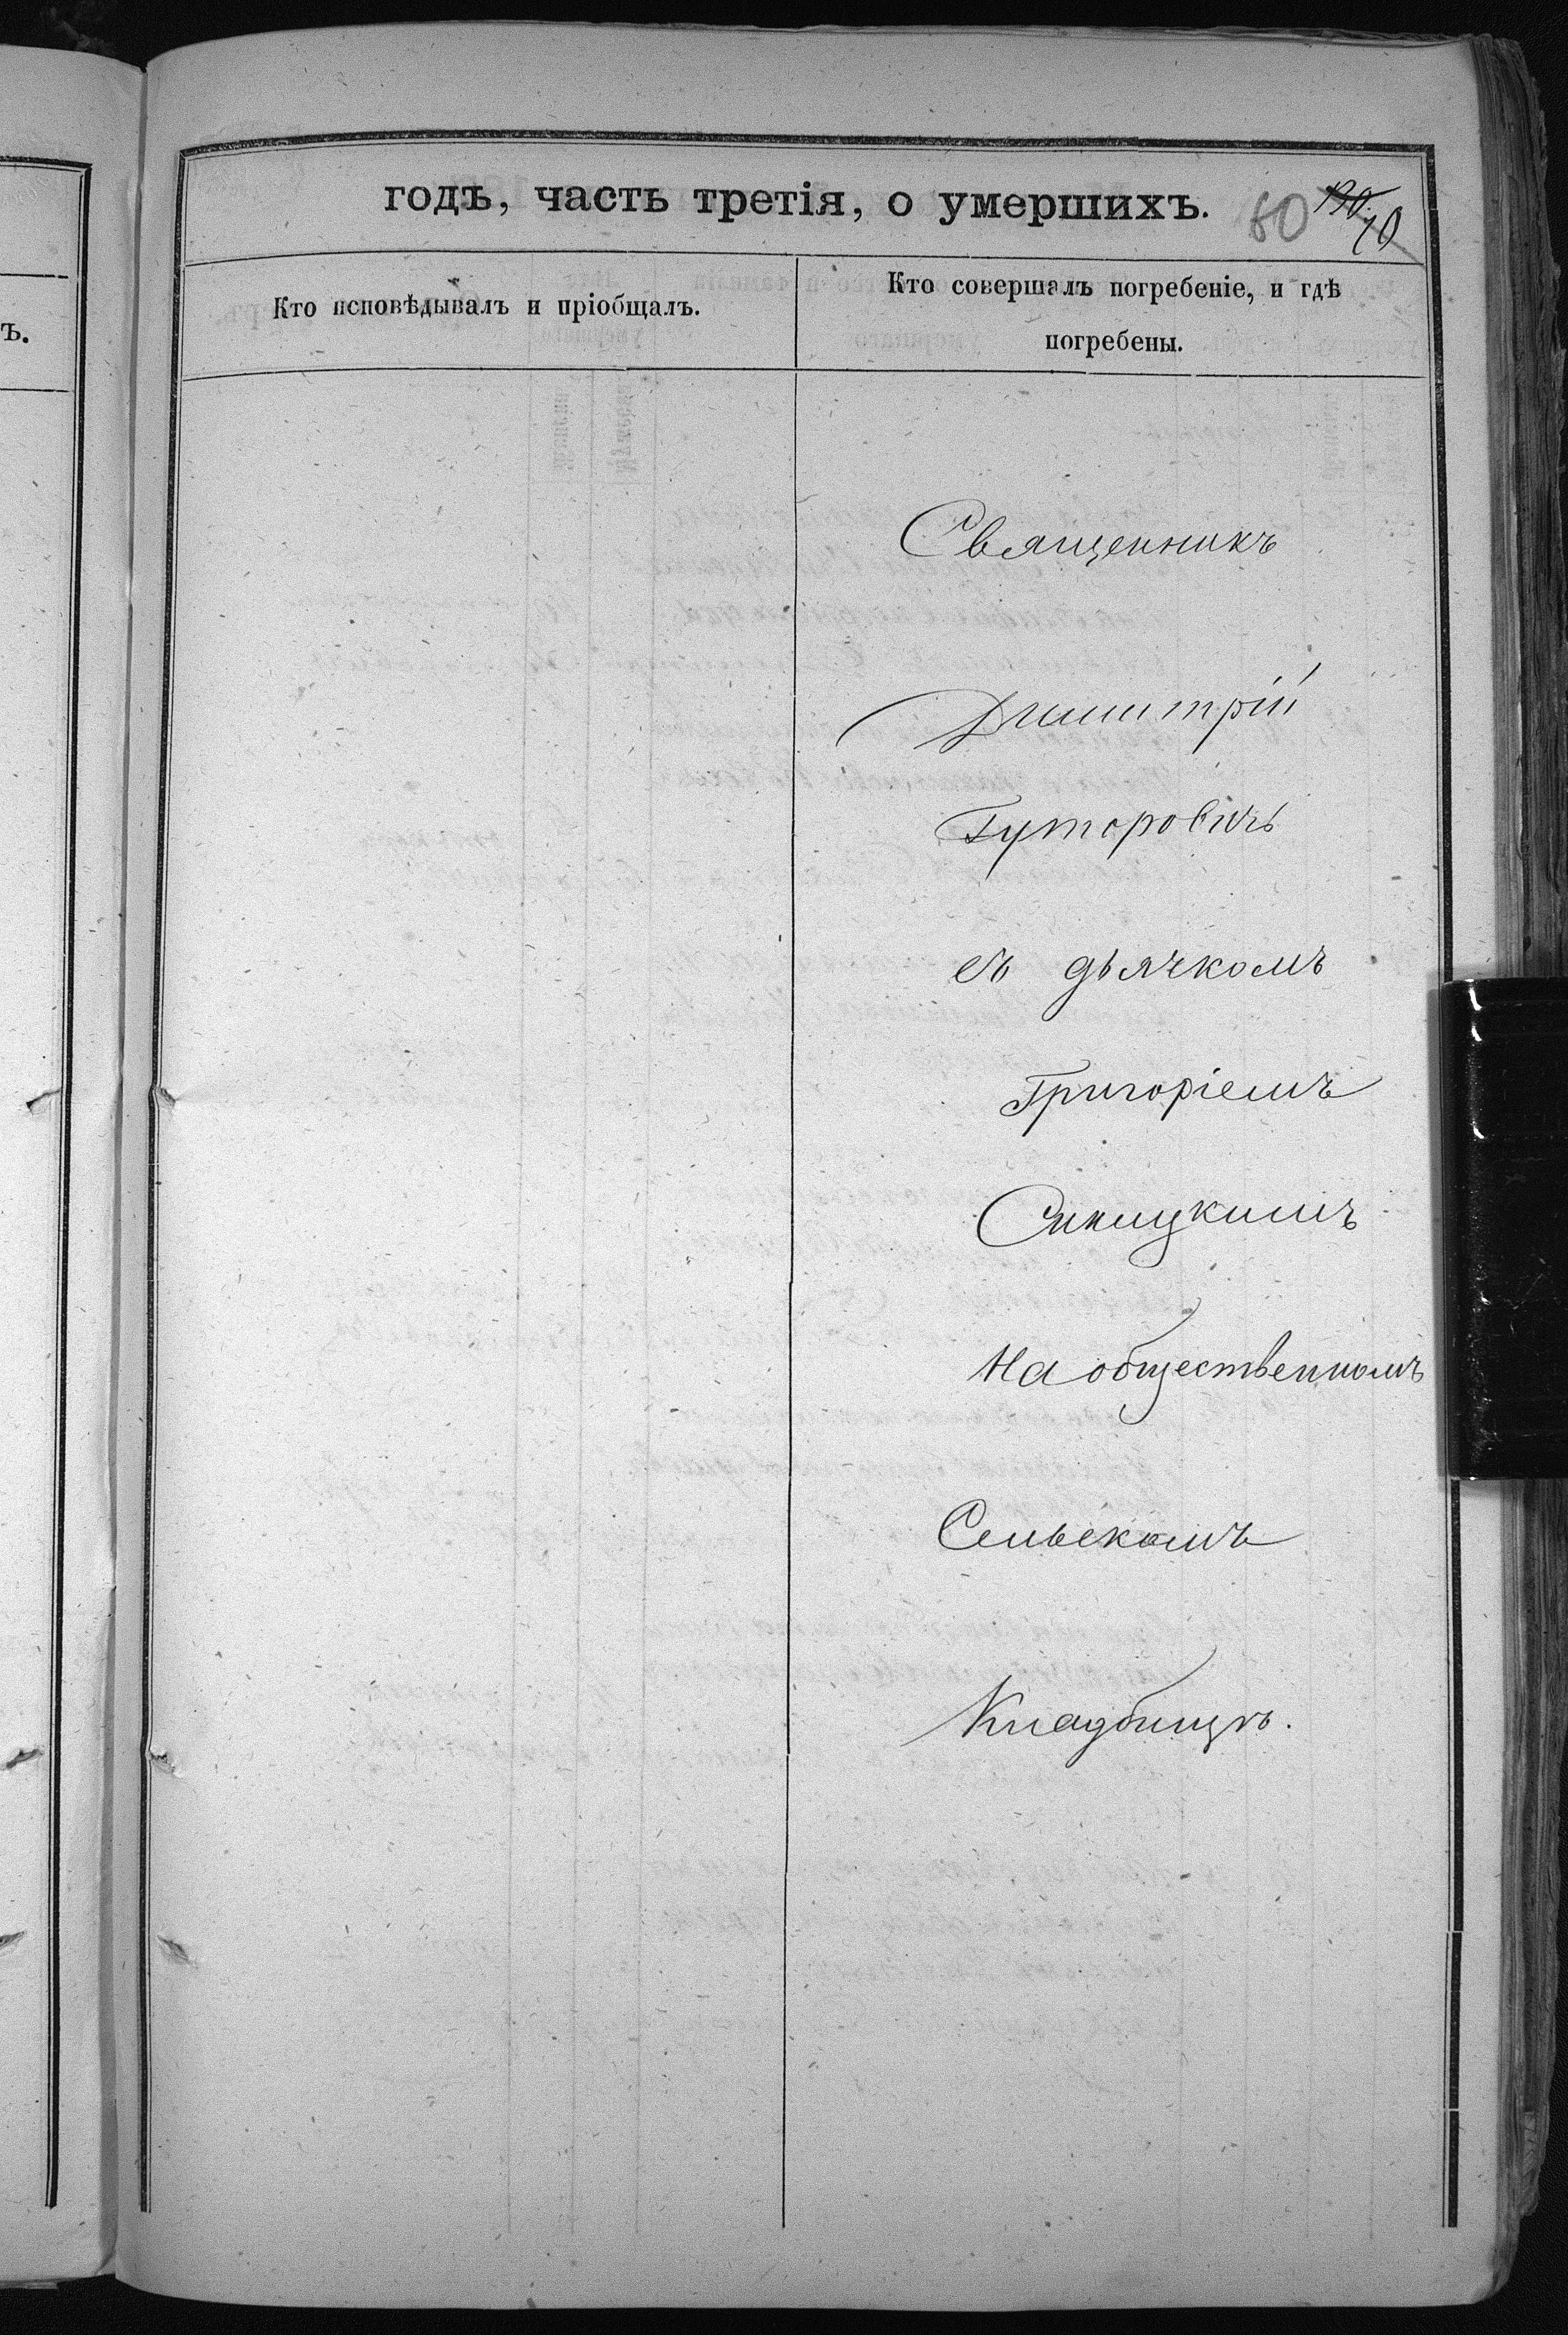 годъ, часть третія, о умершихъ.
60
190.
10
Кто исповѣдывалъ и пріобщалъ.
Кто совершалъ погребеніе, и гдѣ
погребены.
ъ.
Священникъ
Димитрій
Гуторовичъ
съ дьячкомъ
Григоріемъ
Синицкимъ
На общественномъ
Сельскомъ
Кладбищѣ.